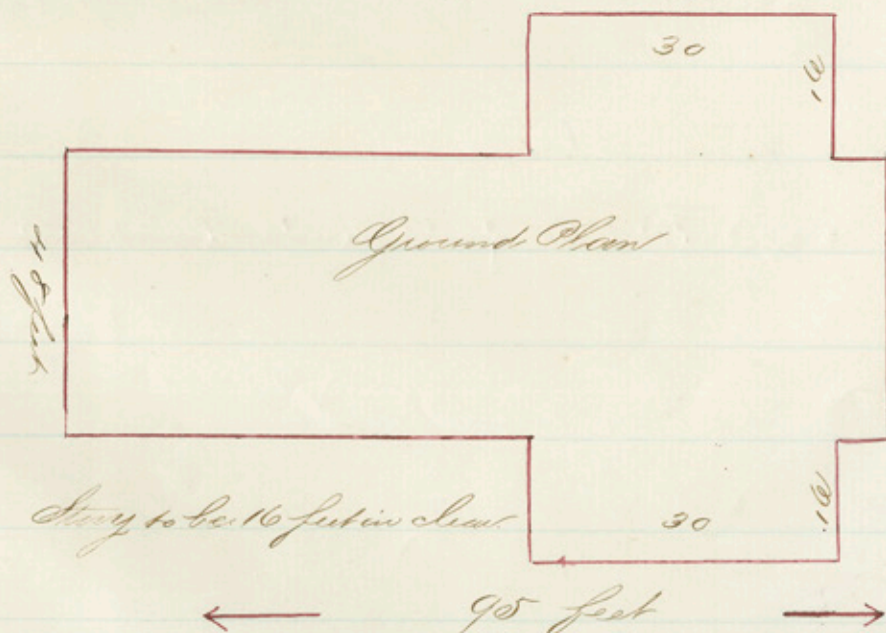 30
16
Ground Plan
48 feet
Story to be 16 feet in clear
30
16
95 feet